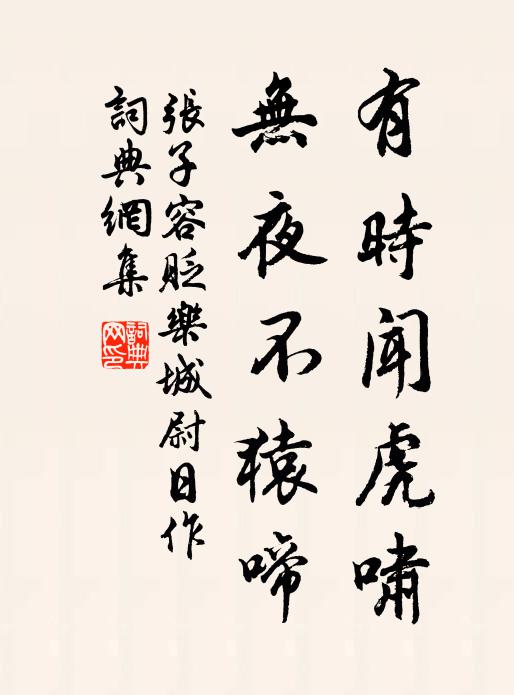 有時聞虎嘯
無夜不猿啼
張子容貶樂城尉日作
詞典網集
詞典
网印